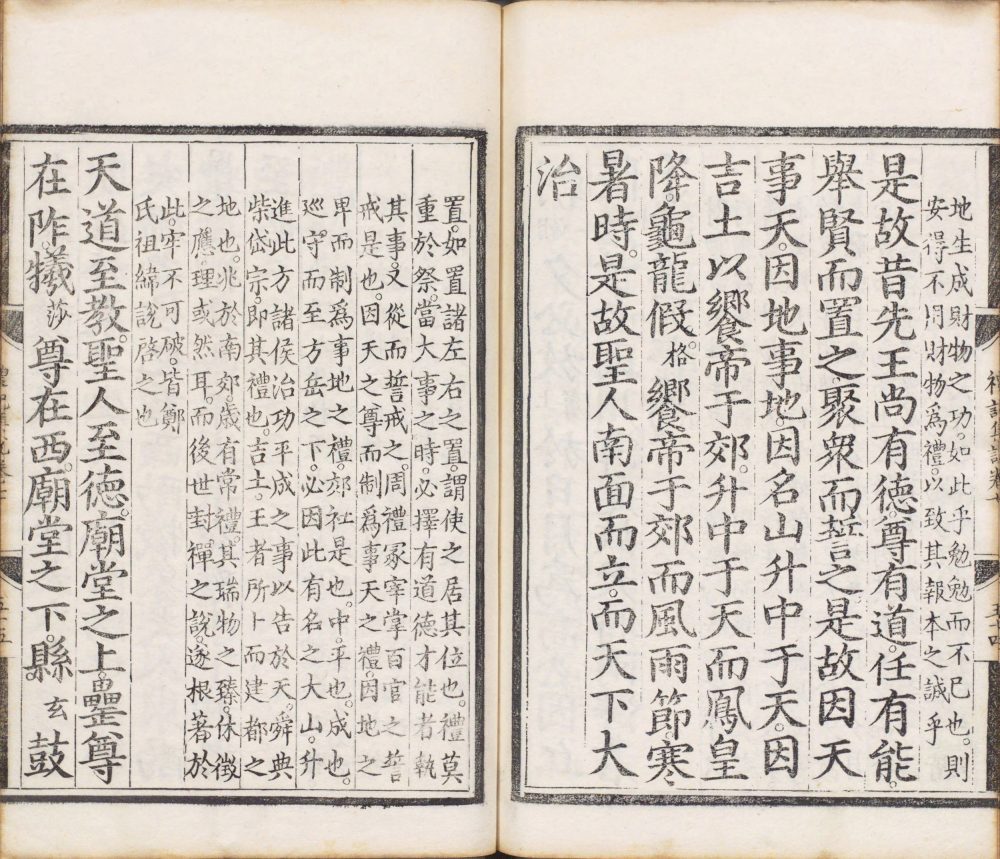 地生成財物之功如此乎勉勉而不已也則
安得不用財物爲禮以致其報本之誠乎
是故昔先王尚有德尊有道任有能
舉賢而置之聚衆而誓之是故因天
事天因地事地因名山升中于天因
吉土以饗帝于郊升中于天而鳳皇
降龜龍假格饗帝于郊而風雨節寒
暑時是故聖人南面而立而天下大
治
置如置諸左右之置謂使之居其位也禮莫
重於祭當大事之時必擇有道德才能者執
其事又從而誓戒之周禮冢宰掌百官之誓
戒是也因天之尊而制爲事天之禮因地之
卑而制爲事地之禮郊社是也中平也成也
巡守而至方岳之下必因此有名之大山升
進此方諸侯治功平成之事以告於天舜典
柴岱宗卽其禮也吉土王者所卜而建都之
地也兆於南郊歲有常禮其瑞物之臻休徵
之應理或然耳而後世封禪之說遂根著於
此牢不可破皆鄭
氏祖緯說啓之也
天道至教聖人至德廟堂之上罍尊
在阼犧莎尊在西廟堂之下縣玄鼓